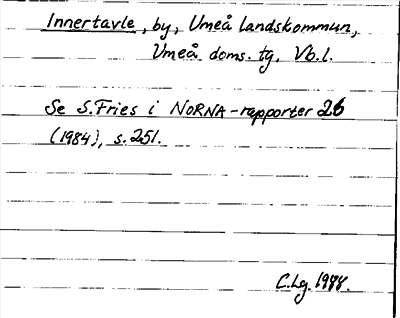 Innertavle, by, Umeå landskommun,
Umeå doms. tg, Vb. l.
Se S. Fries i NORNA-rapporter 26
(1984), s. 251.
C. Lg. 1988.